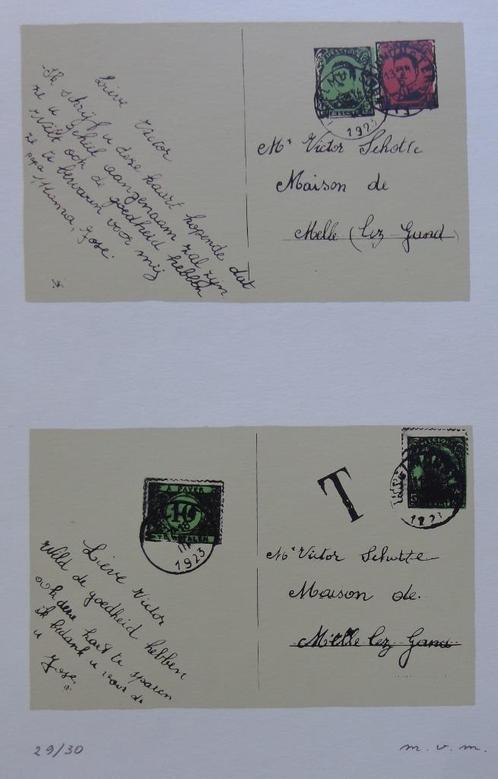 Lieve Victor
Ik schrijf u deze kaart hopende dat
ze u geheel aangenaam zal zijn
Wilt ook de goedheid hebben
ze te bewaren voor mij
Mama, José.
1923
Mr Victor Schotte
Maison de
Melle (lez Gand)
A PAYER
10
TE BETALEN
1923
T
1923
Lieve Victor
Wild de goedheid hebben
ook deze kart te sparen
ik bedank u voor de
u José
Mr Victor Schotte
Maison de.
Melle lez Gand
29/30
m. v. m.